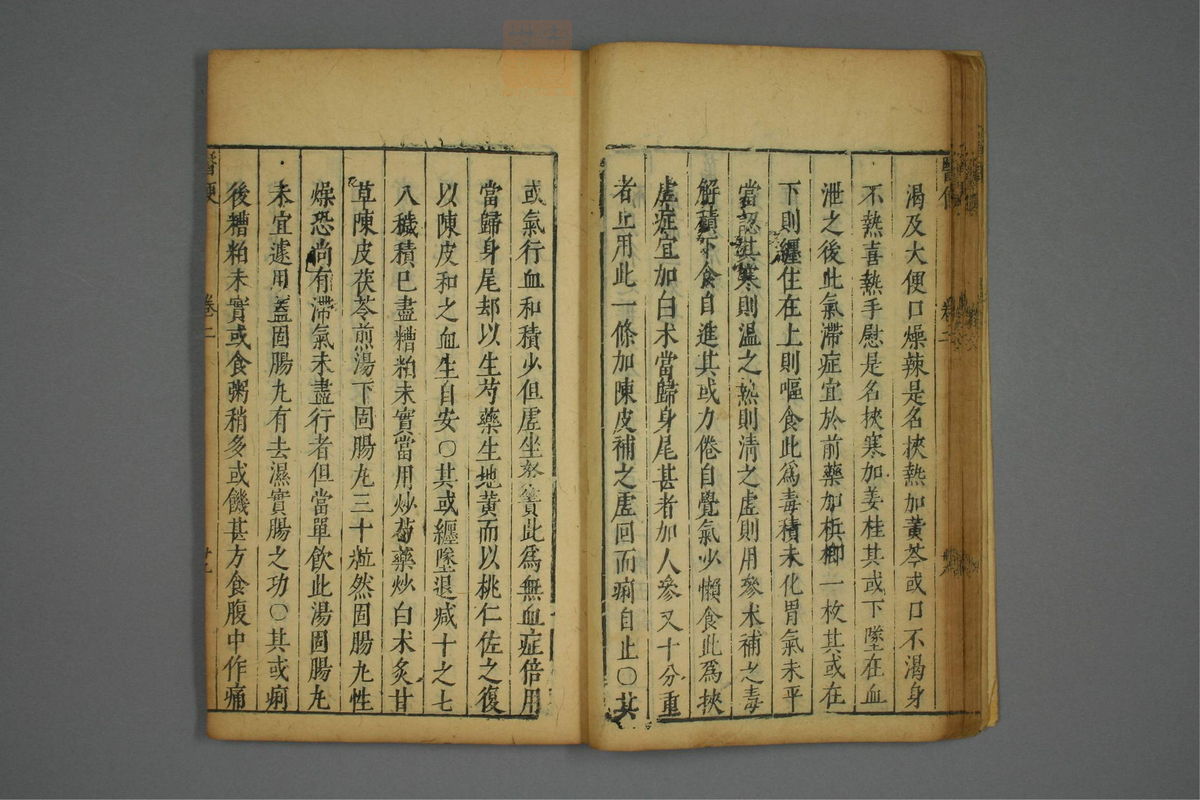 渴及大便口燥辣是名挾熱加黃芩或口不渴身
不熱喜熱手慰是名挾寒加姜桂其或下墜在血
泄之後此氣滯症宜於前藥加梹榔一枚其或在
下則纏住在上則嘔食此爲毒積未化胃氣未平
當認其寒則温之熱則清之虛則用參术補之毒
解積下食自進其或力倦自覺氣少懶食此爲挾
虛症宜加白术當歸身尾甚者加人參又十分重
者止用此一條加陳皮補之虛回而痢自止〇其
或氣行血和積少但虛坐努責此爲無血症倍用
當歸身尾却以生芍藥生地黃而以桃仁佐之復
以陳皮和之血生自安〇其或纏墜退减十之七
八穢積已盡糟粕未實當用炒芍藥炒白术炙甘
草陳皮茯苓煎湯下固腸丸三十粒然固腸丸性
燥恐尚有滯氣未盡行者但當單飲此湯固腸丸
未宜遽用蓋固腸丸有去濕實腸之功〇其或痢
後糟粕未實或食粥稍多或饑甚方食腹中作痛
醫便
卷二